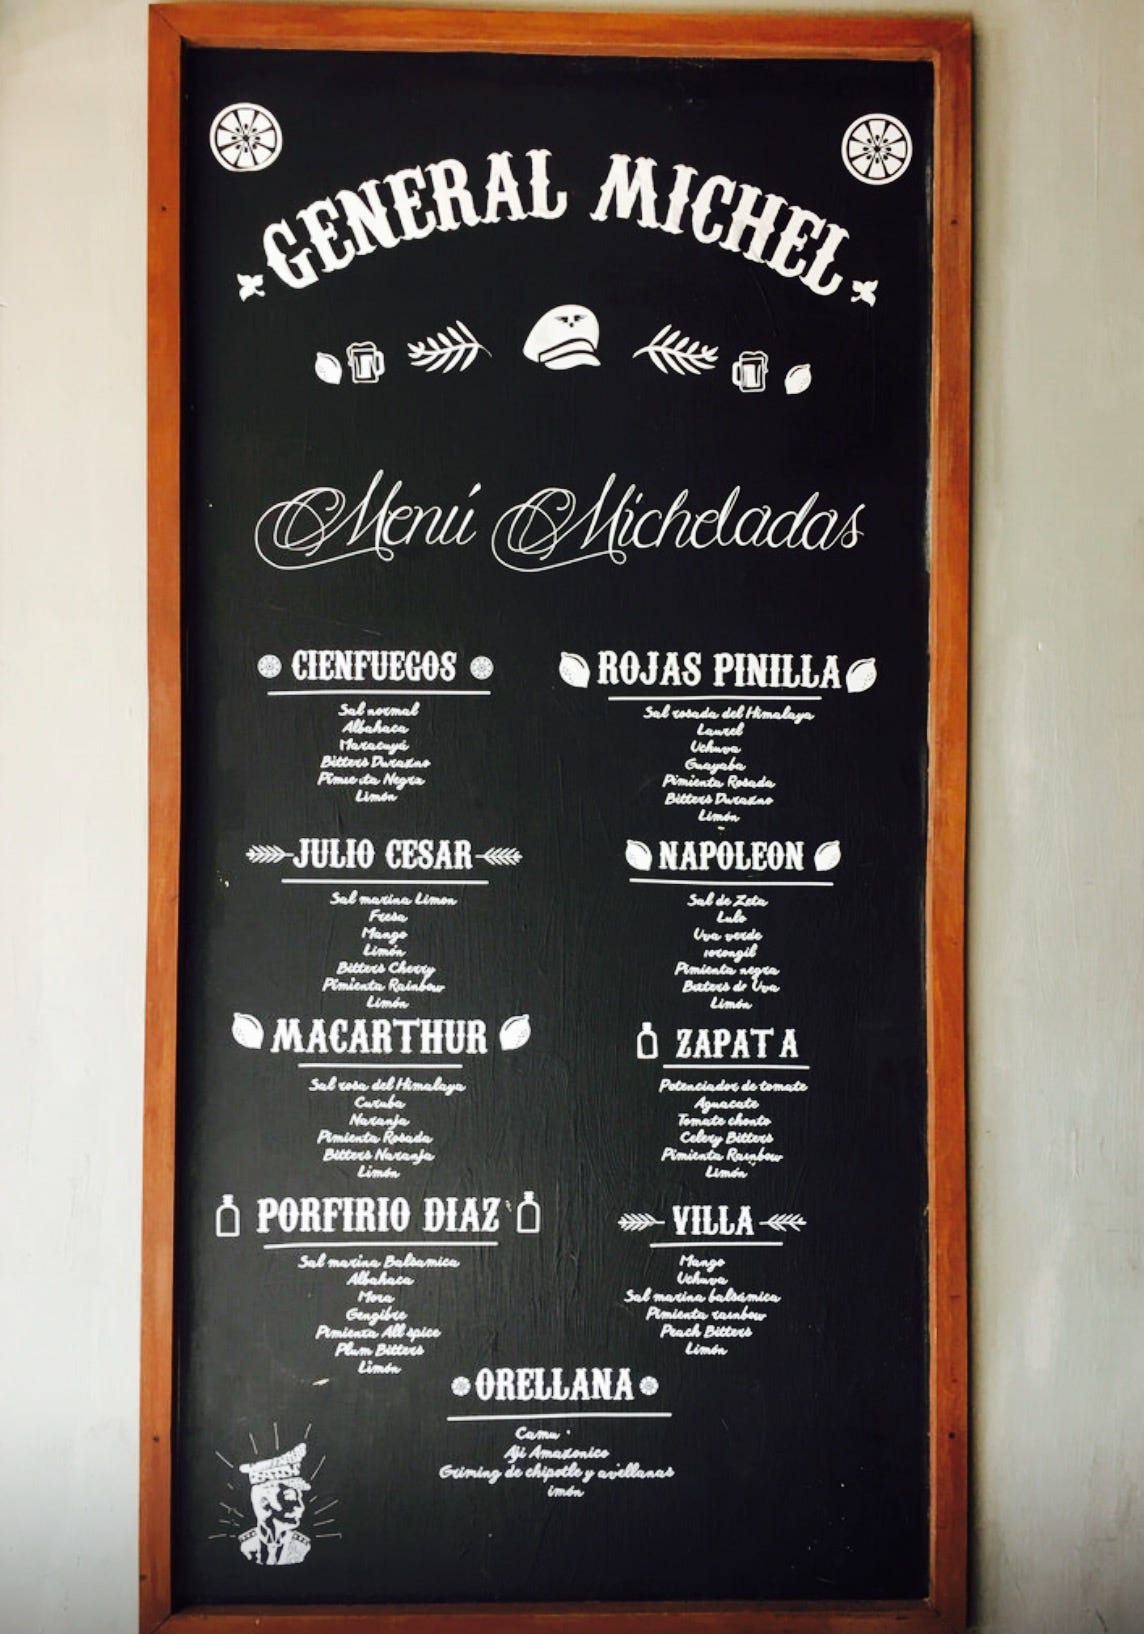 GENERAL MICHEL
Menú Micheladas
CIENFUEGOS
Sal normal
Albahaca
Maracuyá
Bitters Durazno
Pimie ta Negra
Limón
ROJAS PINILLA
Sal rosada del Himalaya
Laurel
Uchuva
Guayaba
Pimienta Rosada
Bitters Durazno
Limón
JULIO CESAR
Sal marina Limon
Fresa
Mango
Limón
Bitters Cherry
Pimienta Rainbow
Limón
NAPOLEON
Sal de Zeta
Lulo
Uva verde
torongil
Pimienta negra
Bitters de Uva
Limón
MACARTHUR
Sal rosa del Himalaya
Curuba
Naranja
Pimienta Rosada
Bitters Naranja
Limón
ZAPATA
Potenciador de tomate
Aguacate
Tomate chonto
Celery Bitters
Pimienta Rainbow
Limón
PORFIRIO DIAZ
Sal marina Balsamica
Albahaca
Mora
Gengibre
Pimienta All spice
Plum Bitters
Limón
VILLA
Mango
Uchuva
Sal marina balsámica
Pimienta rainbow
Peach Bitters
Limón
ORELLANA
Camu
Aji Amazonico
Griming de chipotle y avellanas
imón